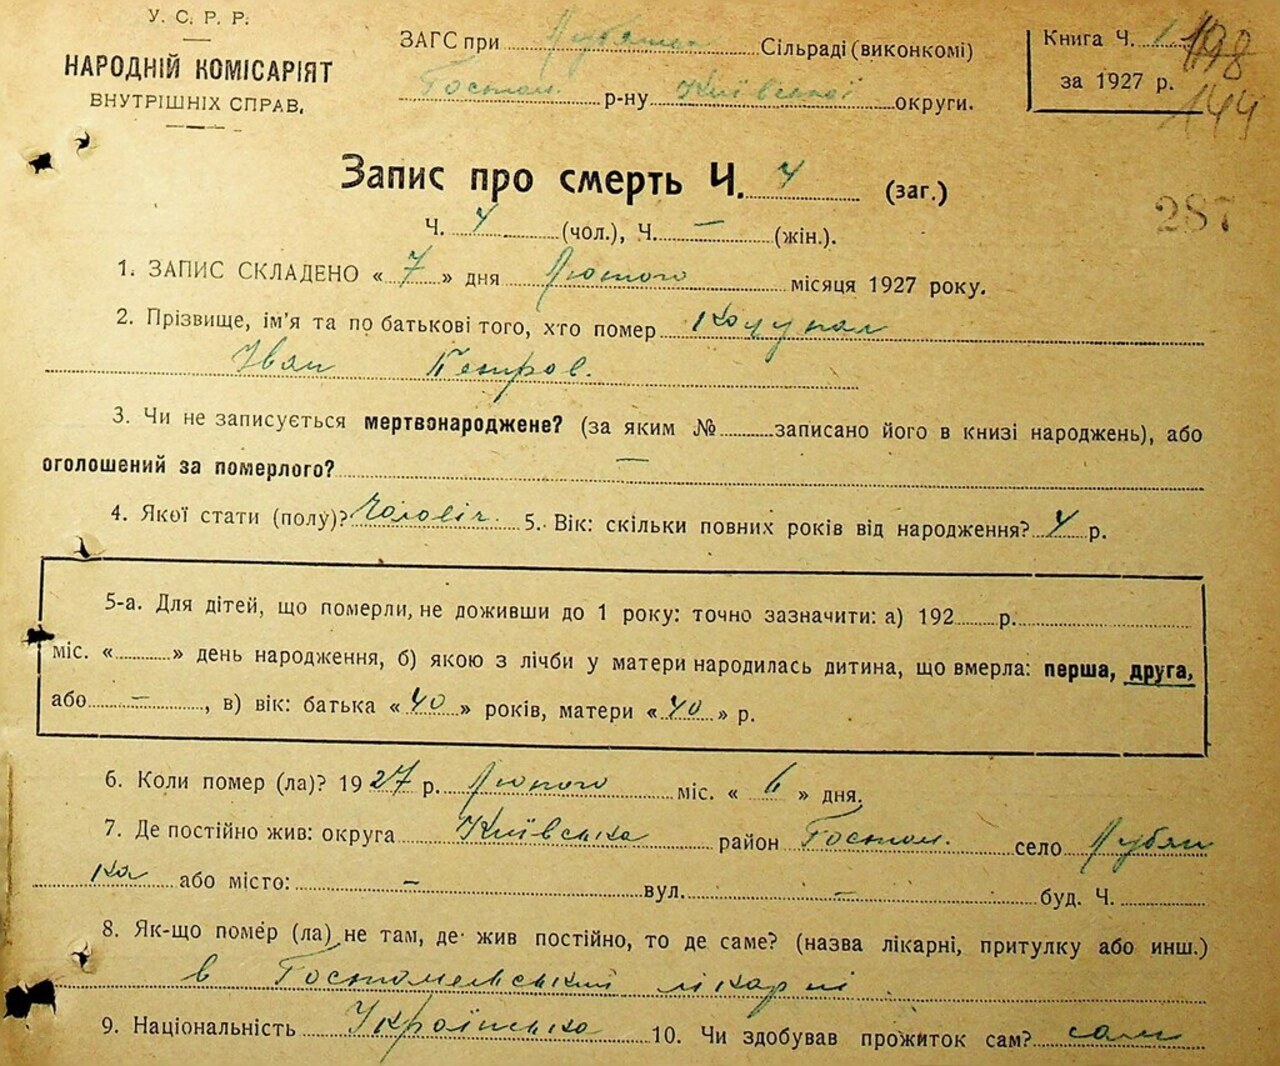 У. С. Р. Р.
НАРОДНІЙ КОМІСАРІЯТ
ВНУТРІШНІХ СПРАВ.
ЗАГС при Сільраді (виконкомі)
Гостом. р-ну Київської округи.
Книга Ч. 1
за 1927 р.
198
144
287
Запис про смерть Ч. 4 (заг.)
Ч. 4 (чол.), Ч. – (жін.).
1. ЗАПИС СКЛАДЕНО « 7 » дня Лютого місяця 1927 року.
2. Прізвище, ім'я та по батькові того, хто помер
Іван Петров.
3. Чи не записується мертвонароджене? (за яким № записано його в книзі народжень), або
оголошений за померлого? –
4. Якої стати (полу)? Чоловіч. 5. Вік: скільки повних років від народження? 4 р.
5-а. Для дітей, що померли, не доживши до 1 року: точно зазначити: а) 192 р.
міс. « » день народження, б) якою з лічби у матери народилась дитина, що вмерла: перша, друга,
або – , в) вік: батька « 40 » років, матери « 40 » р.
6. Коли помер (ла)? 1927 р. Лютого міс. « 6 » дня.
7. Де постійно жив: округа Київська район Гостом. село Лубян
ка або місто: – вул. – буд. Ч.
8. Як-що помер (ла) не там, де жив постійно, то де саме? (назва лікарні, притулку або инш.)
в Гостомельський лікарні
9. Національність Українська 10. Чи здобував прожиток сам? сам